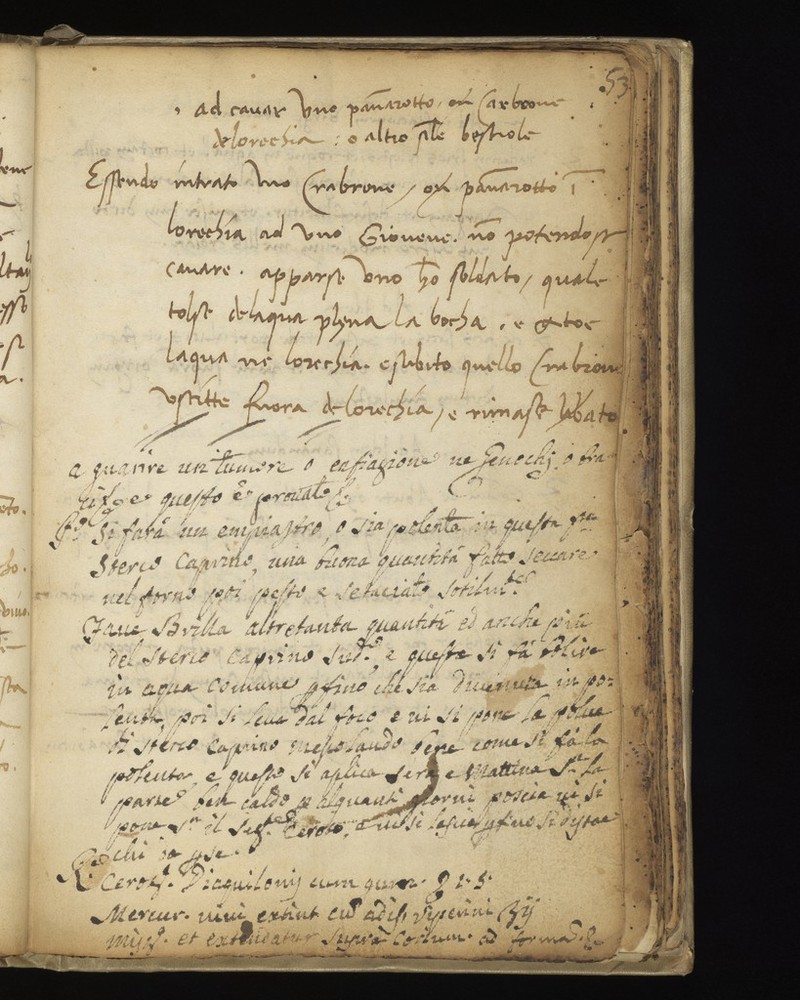 53
ad cavar vno panarotto, over Carbrone
delorechia : o altro sile bestiole
Essendo intrato vno Crabrone, over panarotto i
lorechia ad vno Giovene. no potendosi
cavare. apparse vno ho soldato, quale
tolse delaqua plena la bocha, e
laqua ne lorechia. e subito quello Crabrone
uscitte fuora delorechia, e rimase libato
a guarire un tumore o enfiagione ne Genochi, o bra
e questo è provato
Si farà un empiastro, o sia polenta in questa
Sterco Caprino, una buona quantità fatto seccare
nel forno poi pesto e setaciato sotilmte
altretanta quantità ed anche più
del sterco caprino sudo, e queste si fà bolire
in aqua comune pfino che sia divenuta in po=
lenta, poi si leva dal foco e vi si pone la polve
di sterco Caprino mescolando bene come si fà la
polenta, e questo si aplica sera e mattina sra la
parte ben caldo p alquanti giorni poscia vi si
pone sra il Ceroto, e vi si lascia pfino si
chi da p se.
Cerot. Diaquilonij cum gum.
Mercur. vivi extint cu
misce. et extendatur supra corium. ad forma